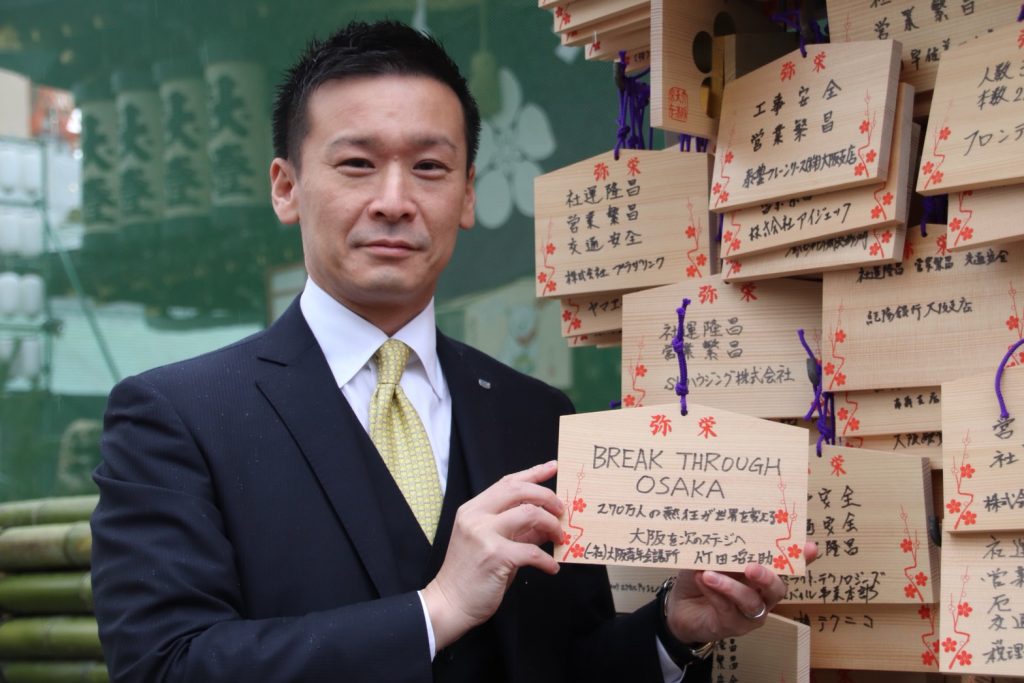 弥栄
BREAK THROUGH
OSAKA
270万人の熱狂が世界を変える
大阪を次のステージへ
(一社)大阪青年会議所
弥栄
社運隆昌
営業繁昌
交通安全
株式会社 プラザリンク
ヤマエ
弥栄
社運隆昌
営業繁昌
ハウジング株式会社
弥栄
工事安全
営業繁昌
大阪支店
株式会社アイジェック
営業繁昌
人数
本数
フロンテ
社運隆昌 営業繁昌 交通安全
紀陽銀行大阪支店
大阪
弥栄
安全
安全
隆昌
テクノロジーズ
事業部
テクニコ
営
社
株式会
社運
営業
厄
交通
税理
大
大
大
大